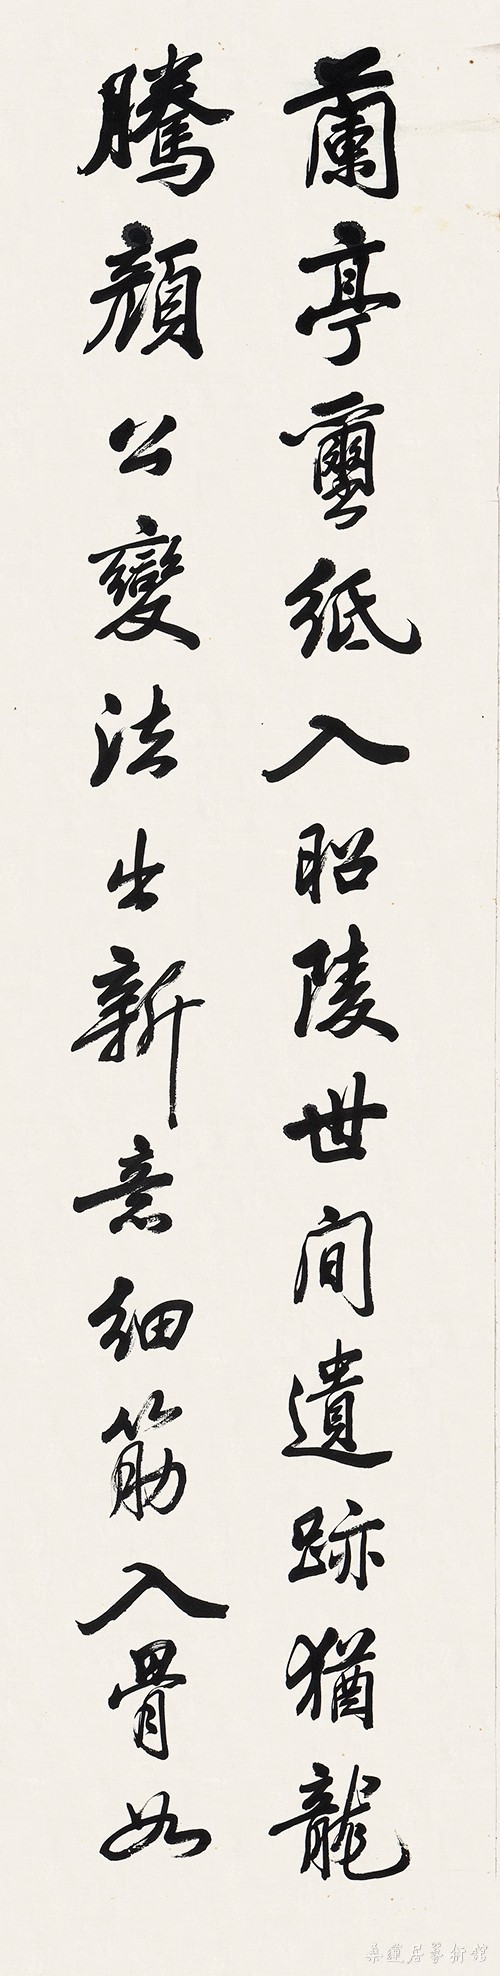 蘭亭蠒紙入昭陵世間遺跡猶龍
騰顏公變法出新意細筋入骨如
桑蓮居藝術館